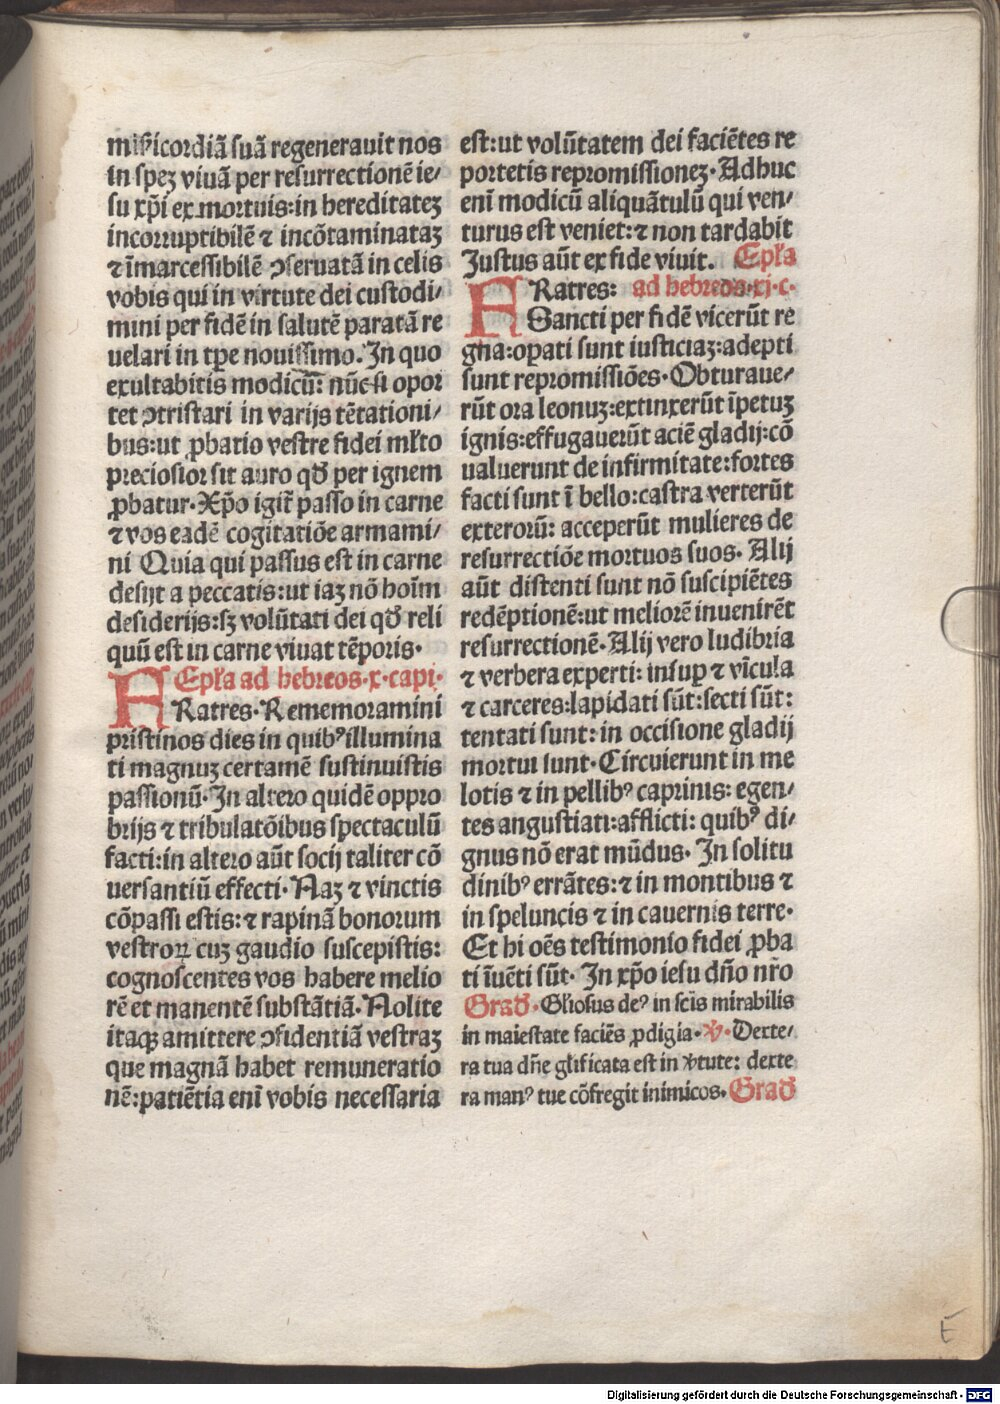 mĩsicordiã suã regenerauit nos
in speʒ viuã per resurrectionẽ ie⸗
su xp̃i ex mortuis:in hereditateʒ
incorruptibilẽ ⁊ incõtaminataʒ
⁊ ĩmarcessibilẽ ↄseruatã in celis
vobis qui in virtute dei custodi⸗
mini per fidẽ in salutẽ paratã re
uelari in tp̃e nouissimo. In quo
exultabitis modicũ: nũc si opor
tet ↄtristari in varijs tẽtationi⸗
bus:ut ꝓbatio vestre fidei mł̃to
preciosior sit auro qď per ignem
ꝓbatur. Xp̃o igit̃ passo in carne
⁊ vos eadẽ cogitatiõe armami⸗
ni Quia qui passus est in carne
desijt a peccatis:ut iaʒ nõ hoĩm
desiderijs:sʒ volũtati dei qď reli
quũ est in carne viuat tẽporis.
Epł̃a ad hebreos.x.capi.
FRatres. Rememoramini
pristinos dies in quibꝰ illumina
ti magnuʒ certamẽ sustinuistis
passionũ. In altero quidẽ oppro
brijs ⁊ tribulatõibus spectaculũ
facti:in altero aũt socij taliter cõ
uersantiũ effecti. Naʒ ⁊ vinctis
cõpassi estis:⁊ rapinã bonorum
vestroꝝ cuʒ gaudio suscepistis:
cognoscentes vos habere melio
rẽ et manentẽ substãtiã. Nolite
itaqʒ amittere ↄfidentiã vestraʒ
que magnã habet remuneratio
nẽ:patiẽtia enĩ vobis necessaria
est:ut volũtatem dei faciẽtes re
portetis repromissioneʒ. Adhuc
enĩ modicũ aliquãtulũ qui ven⸗
turus est veniet:⁊ non tardabit
Justus aũt ex fide viuit. Epł̃a
FRatres: ad hebreos.xj.c.
Sancti per fidẽ vicerũt re
gna:oꝑati sunt iusticiaʒ:adepti
sunt repromissiões. Obturaue⸗
rũt ora leonuʒ:extinxerũt ĩpetuʒ
ignis:effugauerũt aciẽ gladij:cõ
ualuerunt de infirmitate:fortes
facti sunt ĩ bello:castra verterũt
exterorũ: acceperũt mulieres de
resurrectiõe mortuos suos. Alij
aũt distenti sunt nõ suscipiẽtes
redẽptionẽ:ut meliorẽ inuenirẽt
resurrectionẽ. Alij vero ludibria
⁊ verbera experti: insuꝑ ⁊ vĩcula
⁊ carceres:lapidati sũt:secti sũt:
tentati sunt: in occisione gladij
mortui sunt. Circuierunt in me
lotis ⁊ in pellibꝰ caprinis: egen⸗
tes angustiati:afflicti: quibꝰ di⸗
gnus nõ erat mũdus. In solitu
dinibꝰ errãtes:⁊ in montibus ⁊
in speluncis ⁊ in cauernis terre.
Et hi oẽs testimonio fidei ꝓba
ti ĩuẽti sũt. In xp̃o iesu dño nr̃o
Graď. Gł̃iosus deꝰ in sc̃is mirabilis
in maiestate faciẽs ꝓdigia. ℣. Dexte⸗
ra tua dñe gł̃ificata est in ṽtute: dexte
ra manꝰ tue cõfregit inimicos. Graď
E
Digitalisierung gefördert durch die Deutsche Forschungsgemeinschaft - DFG